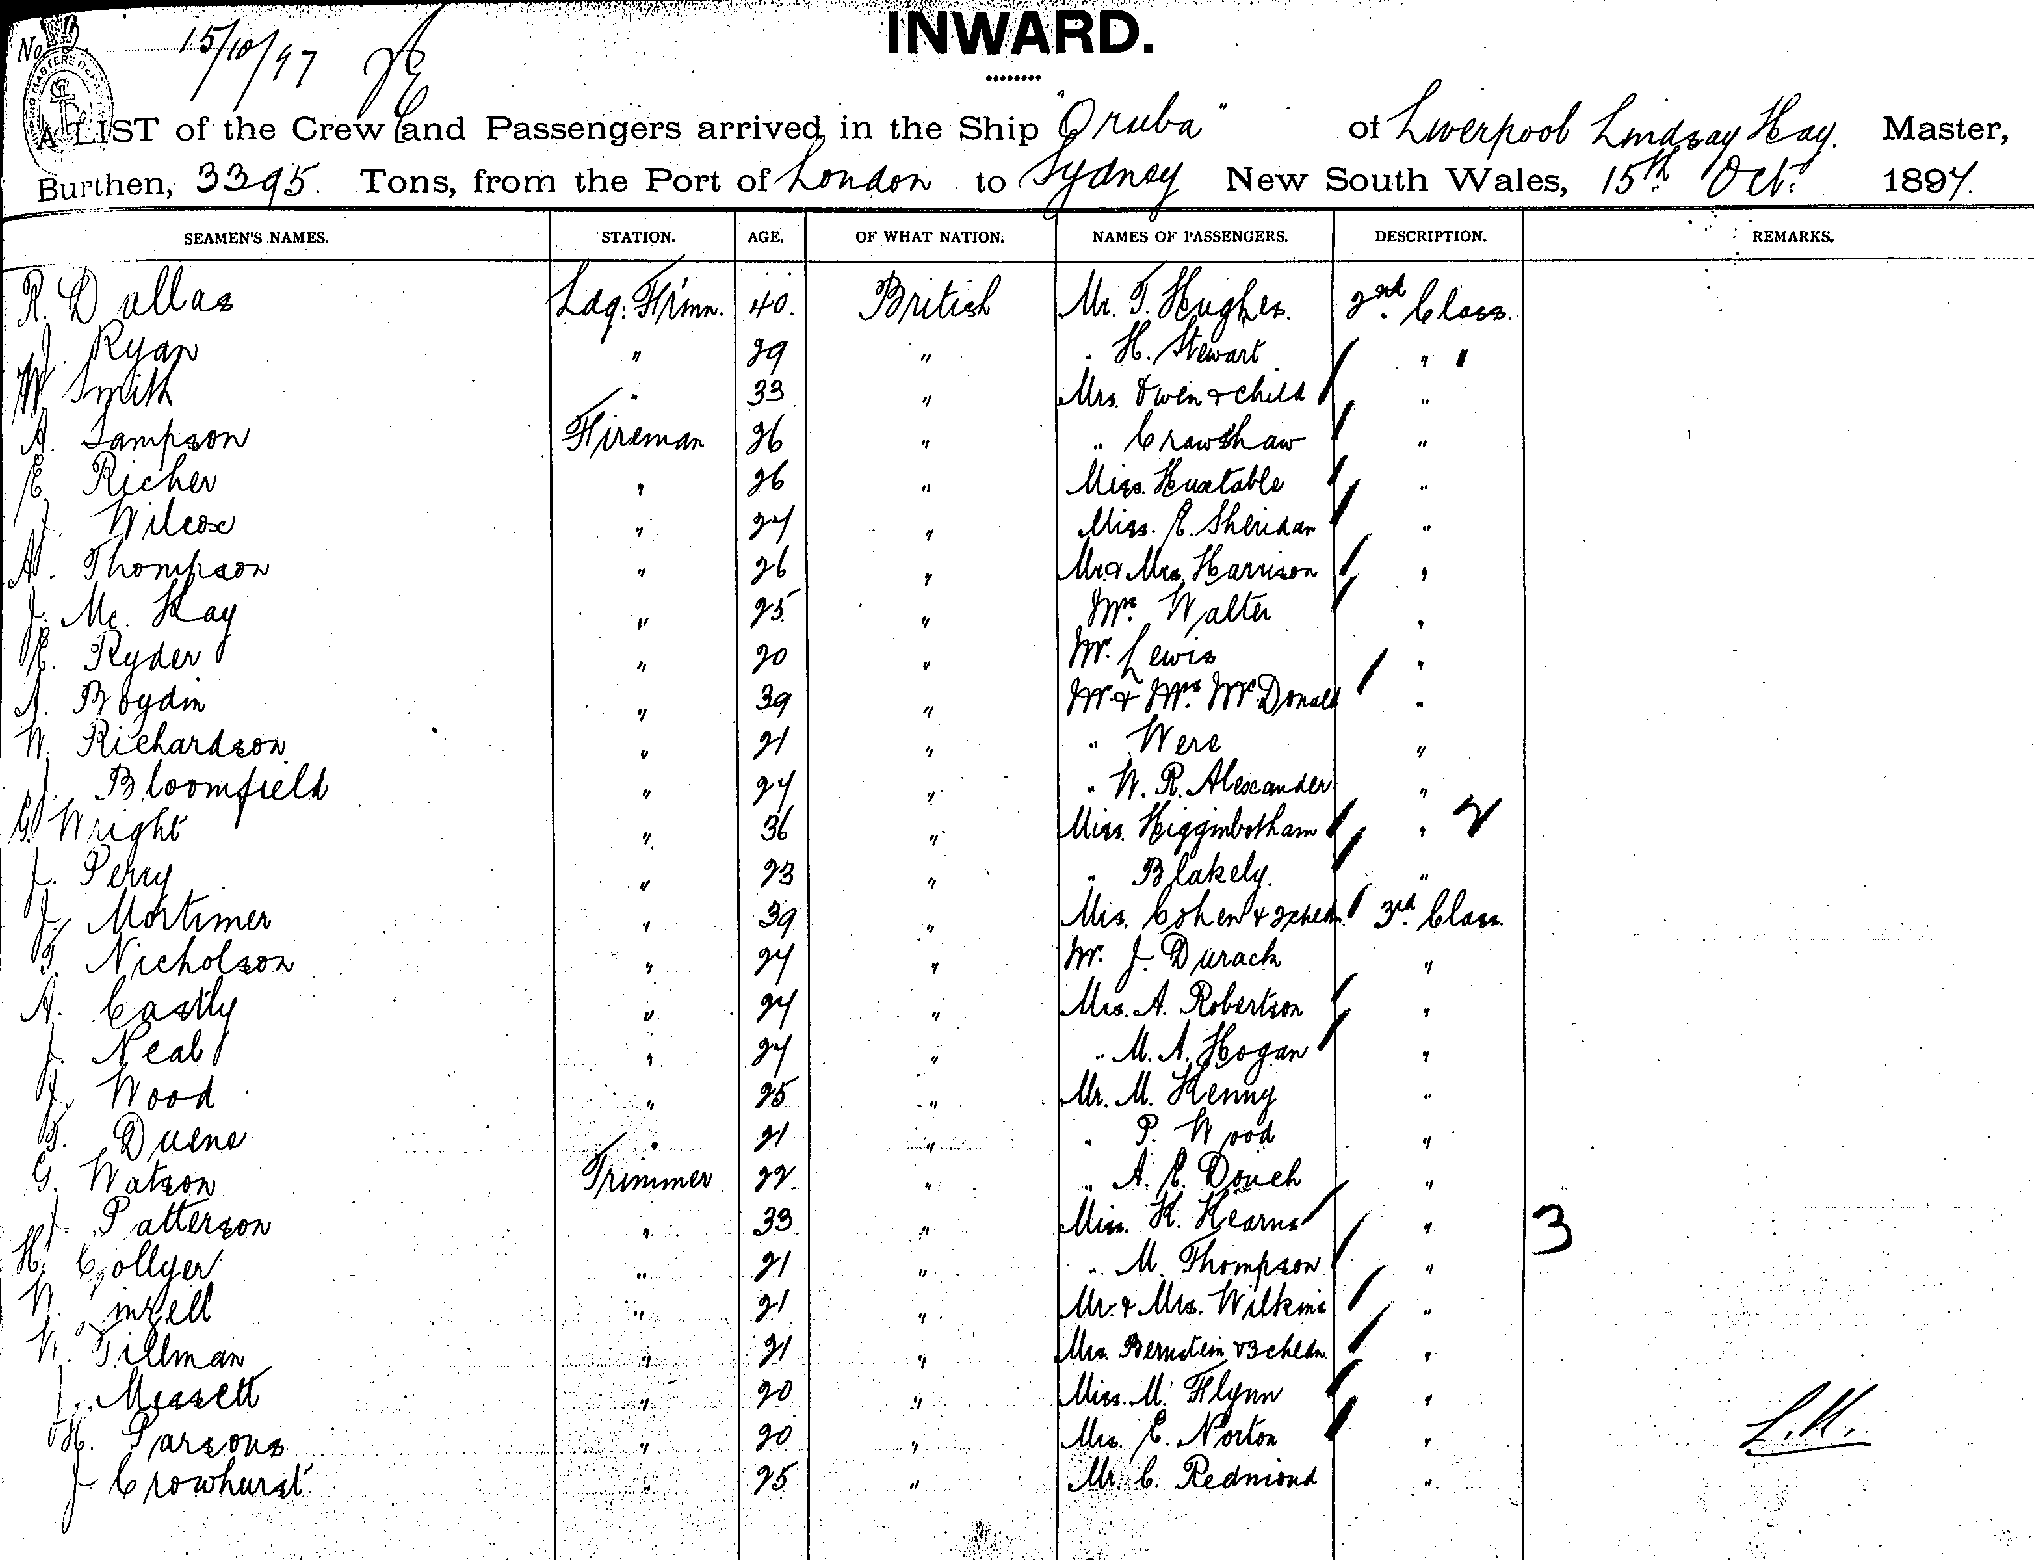 No 15/10/97
INWARD.
A LIST of the Crew and Passengers arrived in the Ship "Oruba" of Liverpool Lindsay Hay. Master,
Burthen, 3395. Tons, from the Port of London to Sydney New South Wales, 15th Oct: 1897.
SEAMEN'S NAMES. STATION. AGE. OF WHAT NATION. NAMES OF PASSENGERS. DESCRIPTION. REMARKS.
R. Dallas Ldg. Firmn. 40. British Mr. T. Hughes. 2nd Class.
J. Ryan " 29 " " H. Stewart " "
W Smith " 33 " Mrs. Owen & child "
A. Sampson Fireman 26 " " Crawshaw "
E. Richer " 26 " Miss. Huxtable "
J. Wilcox " 24 " Miss. E. Sheridan "
A. Thompson " 26 " Mr & Mrs Harrison "
J. Mc. Kay " 25 " Mrs. Walter "
E. Ryder " 20 " Mr. Lewis "
A. Boydin " 39 " Mr & Mrs. McDonald "
W. Richardson " 21 " " Were "
J. Bloomfield " 24 " " W. R. Alexander "
G Wright " 36 " Miss. Higginbotham " 2
J. Perry " 23 " " Blakely. "
J. Mortimer " 39 " Mrs. Cohen & 2 chldn 3rd Class.
T. Nicholson " 24 " Mr. J. Durack "
A. Castly " 24 " Mrs. A. Robertson "
J. Neal " 24 " " M. A. Hogan "
J. Wood " 25 " Mr. M. Kenny "
T. Duene " 21 " " P. Wood "
G. Watson Trimmer 22 " " A. E. Douch "
J. Patterson " 33 " Miss. K. Kearns " 3
H. Collyer " 21 " " M. Thompson "
W. " 21 " Mr. & Mrs. Wilkins "
W. Tillman " 21 " Mrs. Bernstein & 3 chldn. "
J. Messett " 20 " Miss. M. Flynn "
H. Parsons " 20 " Mrs. E. Norton " L.H.
J Crowhurst " 25 " Mr. C. Redmond "